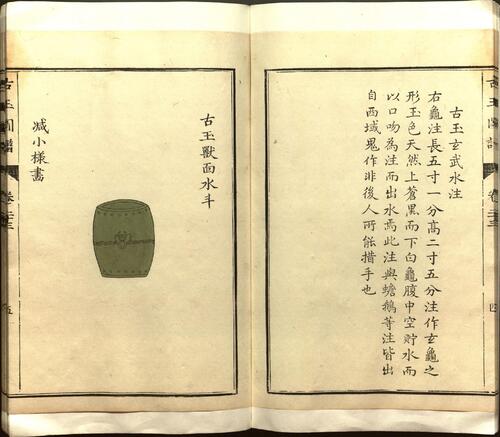 古玉圖譜
卷二十三
四
古玉玄武水注
右龜注長五寸一分高二寸五分注作玄龜之
形玉色天然上蒼黑而下白龜腹中空貯水而
以口吻為注而出水焉此注與蟾鵝等注皆出
自西域鬼作非後人所能措手也
古玉獸面水斗
減小樣畫
古玉圖譜
五